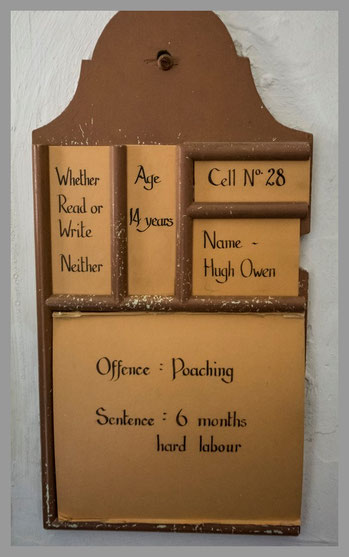 Whether
Read or
Write
Neither
Age
14 years
Cell No. 28
Name -
Hugh Owen
Offence : Poaching
Sentence : 6 months
hard labour